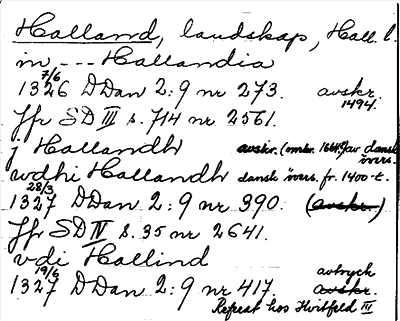 Halland, landskap, Hall. l.
in --- Hallandia
7/6
1326 DDan 2:9 nr 273. avskr. 1494.
Jfr SD III s. 714 nr 2561.
j Hallandh avskr. (omkr. 1664?) av dansk övers.
wdhi Hallandh dansk övers. fr. 1400-t.
28/3
1327 DDan 2:9 nr 390. (avskr.)
Jfr SD IV s. 35 nr 2641.
vdi Hallind
19/6 avtryck
1327 DDan 2:9 nr 417. avskr.
Repeat hos Hvitfeld III